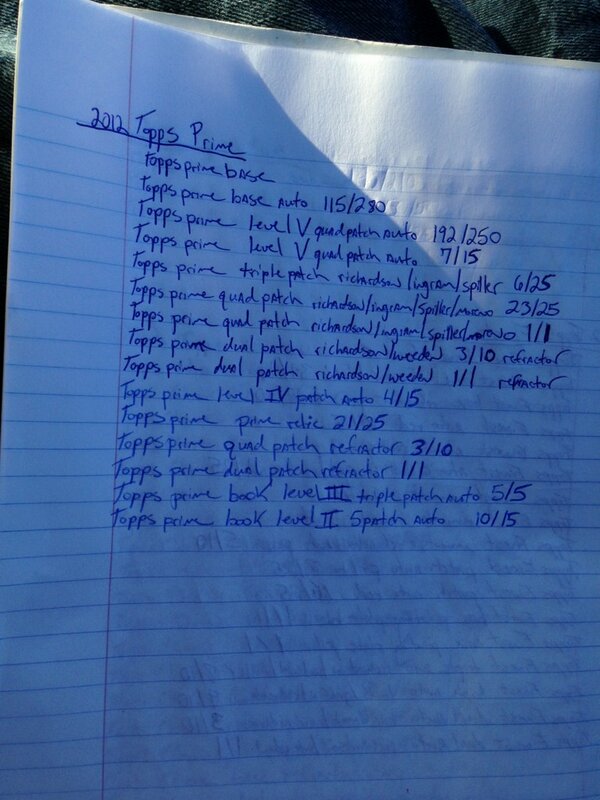 2012 Topps Prime
Topps prime base
Topps prime base auto 115/280
Topps prime level V quad patch auto 192/250
Topps prime level V quad patch auto 7/15
Topps prime triple patch richardson/ingram/spiller 6/25
Topps prime quad patch richardson/ingram/spiller/moreno 23/25
Topps prime quad patch richardson/ingram/spiller/moreno 1/1
Topps prime dual patch richardson/weeden 3/10 refractor
Topps prime dual patch richardson/weeden 1/1 refractor
Topps prime level IV patch auto 4/15
Topps prime prime relic 21/25
Topps prime quad patch refractor 3/10
Topps prime dual patch refractor 1/1
Topps prime book level III triple patch auto 5/5
Topps prime book level II 5patch auto 10/15